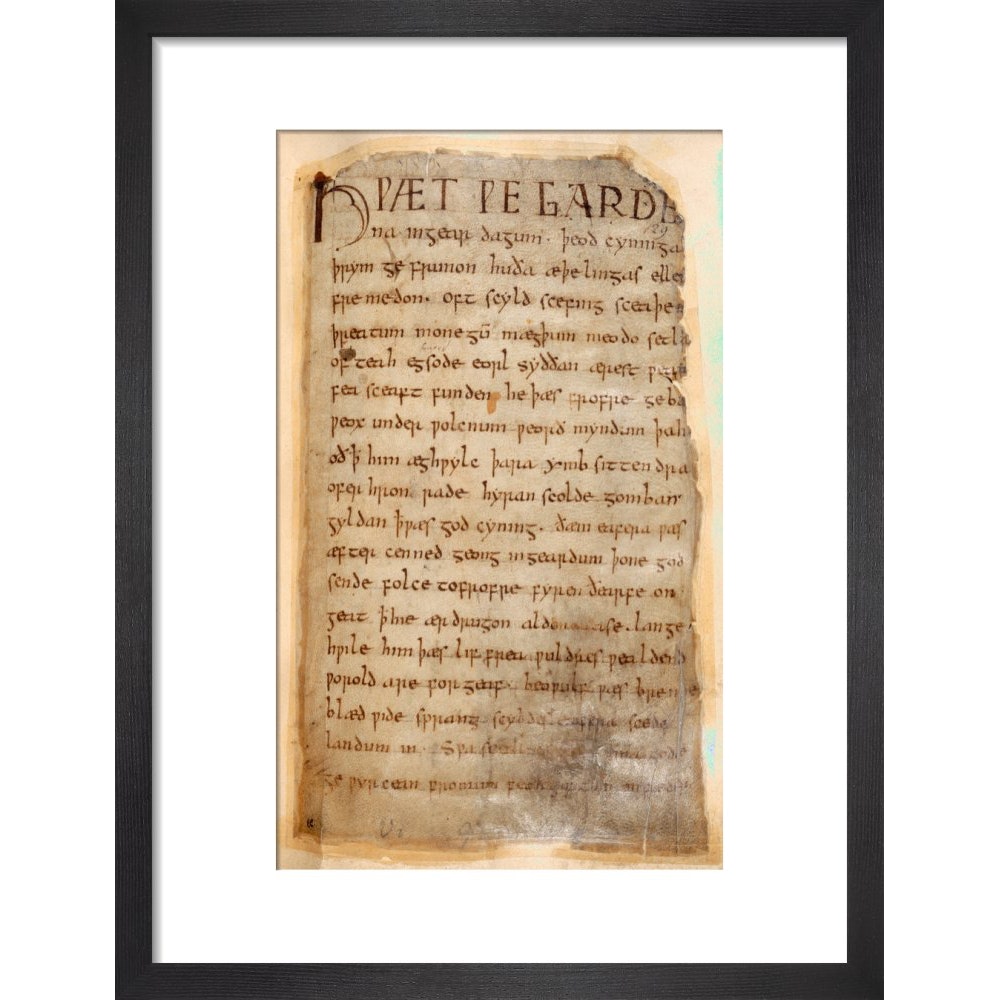 HǷÆT ǷE GARDE
129
na ingear dagum. þeod cyninga
þrym ge frunon huða æþelingas elle
fre medon. oft scyld scefing sceaþe
þreatum monegū mægþum meodo setla
of teah egsode eorl syððan ærest
fea sceaft funden he þæs frofre geba
ƿeox under ƿolcnum ƿeorð myndum þah
oð ꝥ him æghƿylc þara ymb sittendra
ofer hron rade hyran scolde gomban
gyldan ꝥƿæs god cyning. ðæm eafera ƿæs
æfter cenned geong ingeardum þone god
sende folce tofrofre fyren ðearfe on
geat ꝥhie ær drugon aldor ase. lange
hƿile him þæs lif frea ƿuldres ƿealdend
ƿorold are for geaf. beoƿulf ƿæs breme
blæd ƿide sprang scyldes eafera scede
landum in. Sƿa sceal
ge ƿyrcean fromum feoh